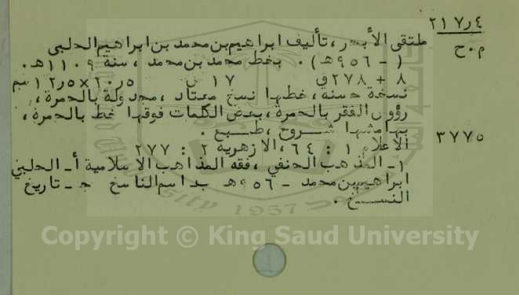 ٢١٧٫٤
م٠ح
ملتقى الأبحر، تأليف ابراهيم بن محمد بن ابراهيم الحلبي
( - ٩٥٦هـ). بخط محمد بن محمد، سنة ١١٠٩هـ.
٨ + ٢٧٨ق ١٧ س ٢٠٫٥×١٢٫٥سم
نسخة حسنة، خطها نسخ معتاد، مجدولة بالحمرة،
رؤوس الفقر بالحمرة، بعض الكلمات فوقها خط بالحمرة،
بهامشها شروح، طبع.
٣٧٧٥
الأعلام ١ : ٦٤، الأزهرية ٢ : ٢٧٧
١- المذهب الحنفي، فقه المذاهب الاسلامية أ- الحلبي
ابراهيم بن محمد - ٩٥٦هـ ب- اسم الناسخ ج- تاريخ
النسخ.
1957
Copyright © King Saud University